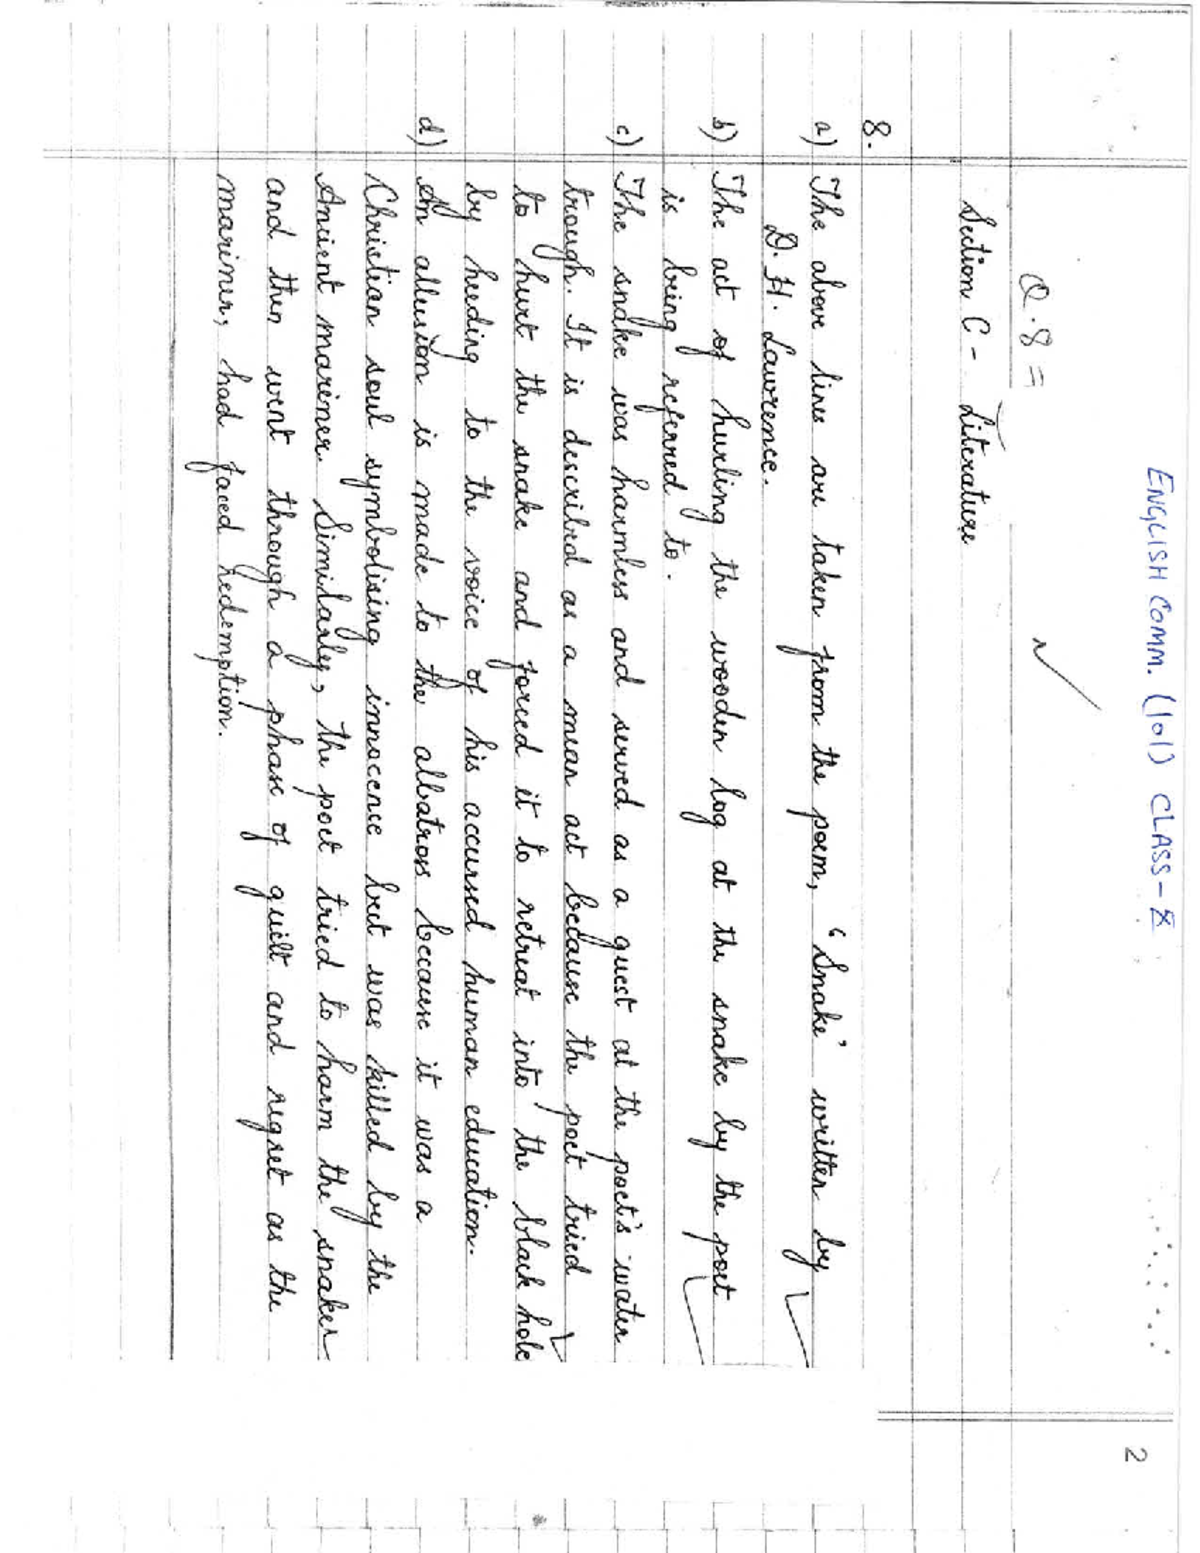 ENGLISH COMM. (101) CLASS-X
2
Q.8 =
Section C - Literature
8.
a) The above lines are taken from the poem, 'Snake' written by
D.H. Lawrence.
b) The act of hurling the wooden log at the snake by the poet
is being referred to.
c) The snake was harmless and served as a guest at the poet's water
trough. It is described as a mean act because the poet tried
to hurt the snake and forced it to retreat into the black hole
by heeding to the voice of his accursed human education.
d) An allusion is made to the albatross because it was a
Christian soul symbolising innocence but was killed by the
Ancient mariner. Similarly, the poet tried to harm the snake
and then went through a phase of guilt and regret as the
mariner, had faced redemption.